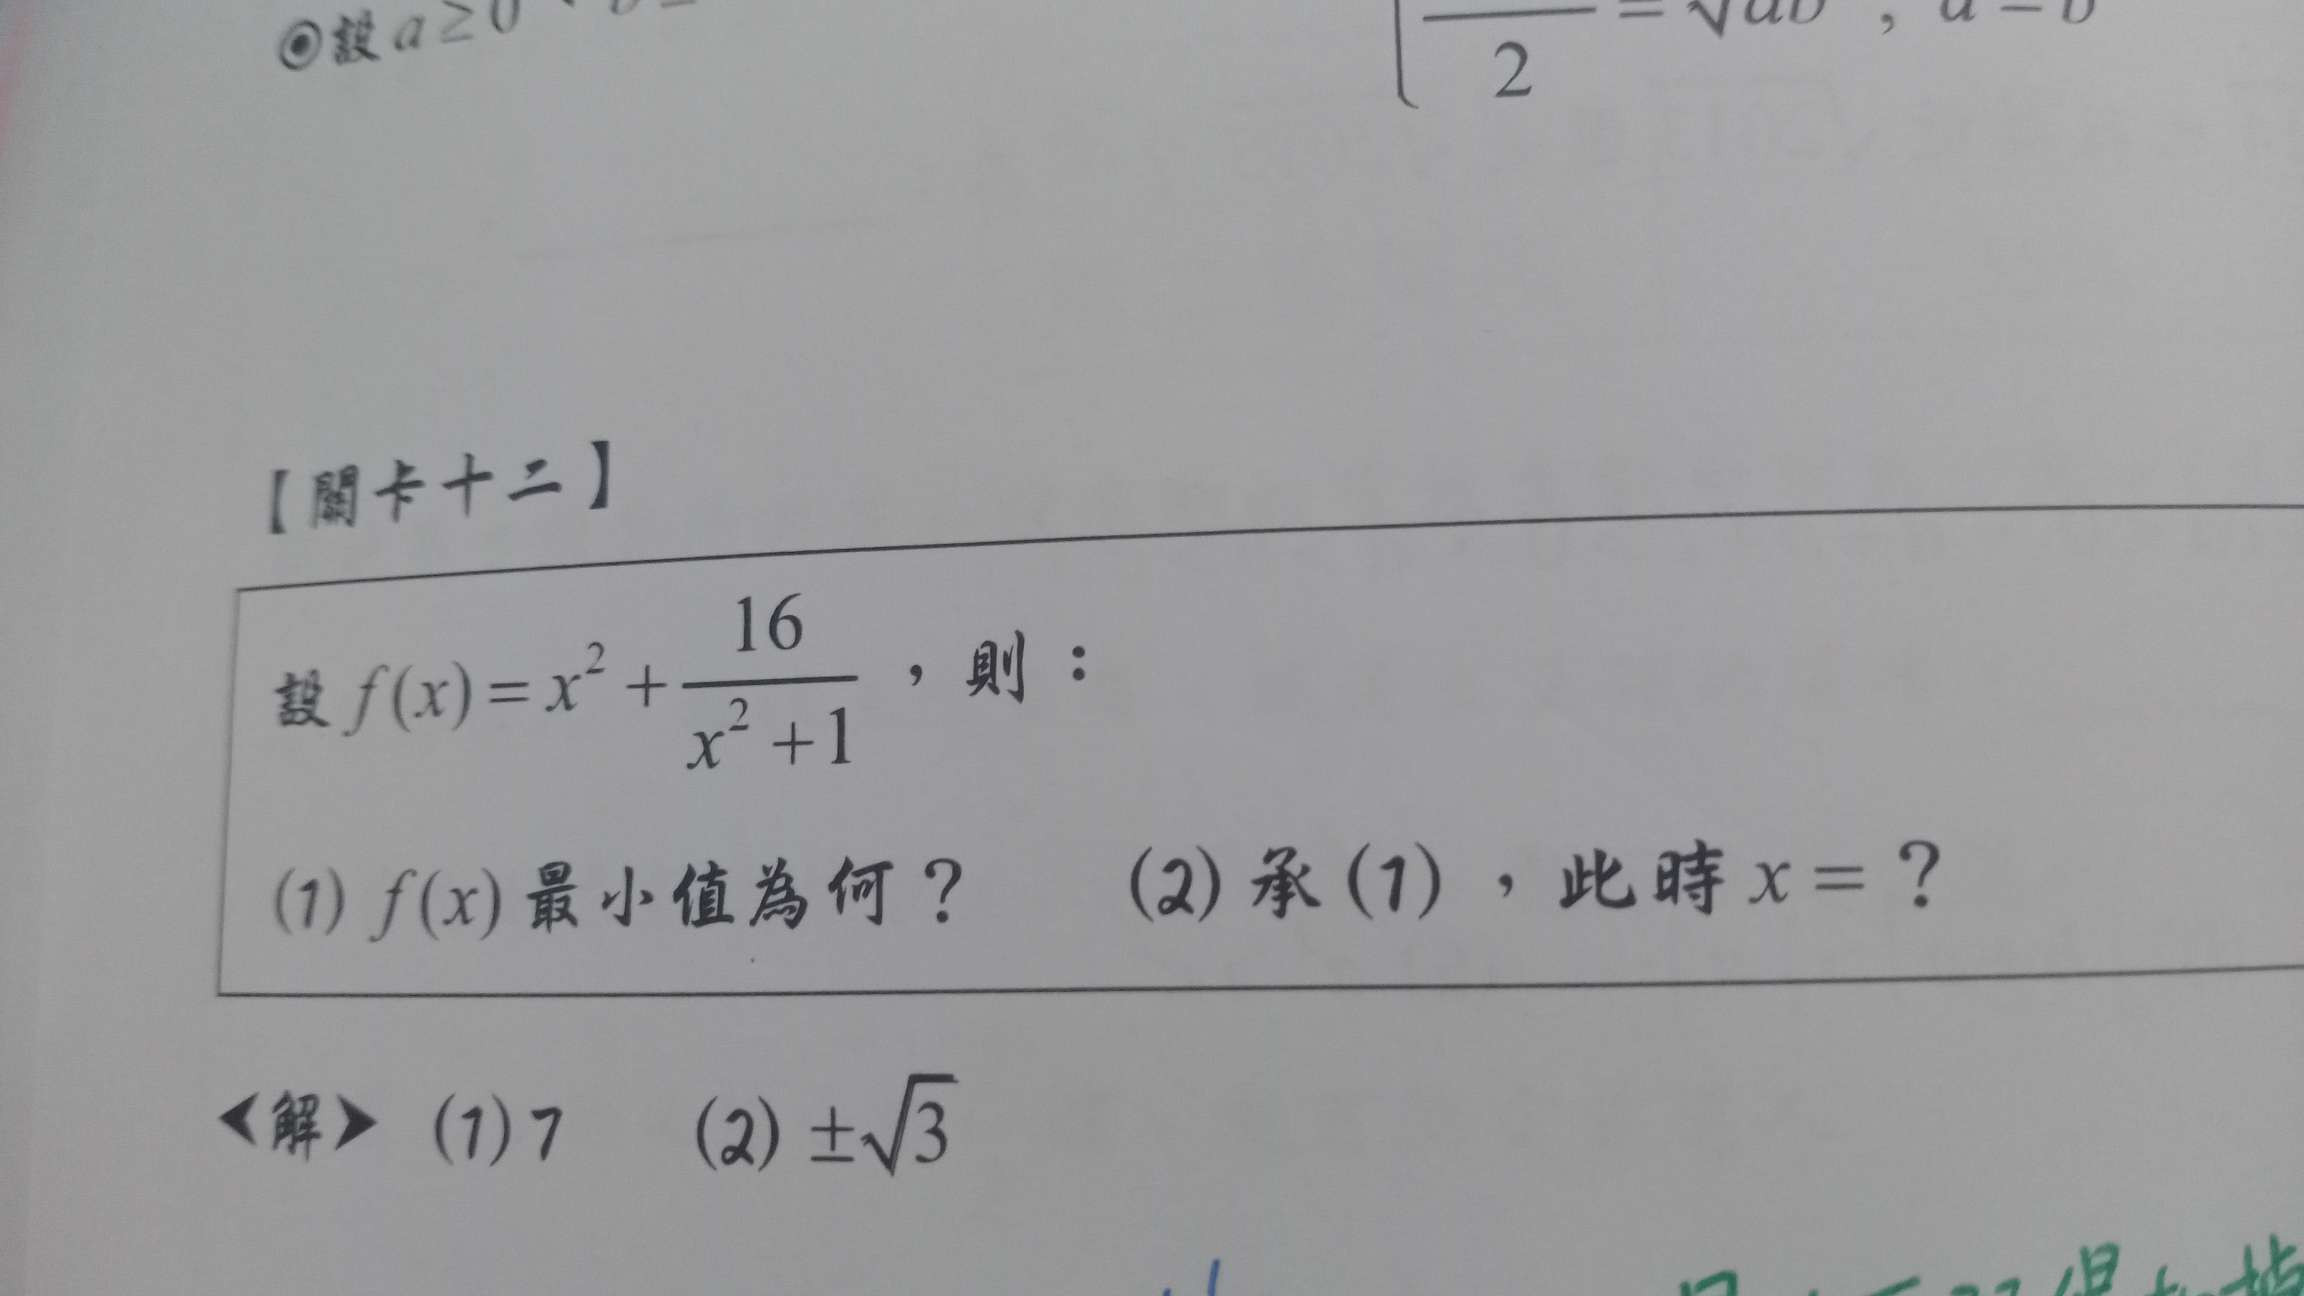 ◎設 a ≥ 0
2 = √ab , a = b
【關卡十二】
設 f(x) = x² + 16/(x² + 1) ，則：
(1) f(x) 最小值為何？ (2) 承 (1) ，此時 x = ？
<解> (1) 7 (2) ±√3